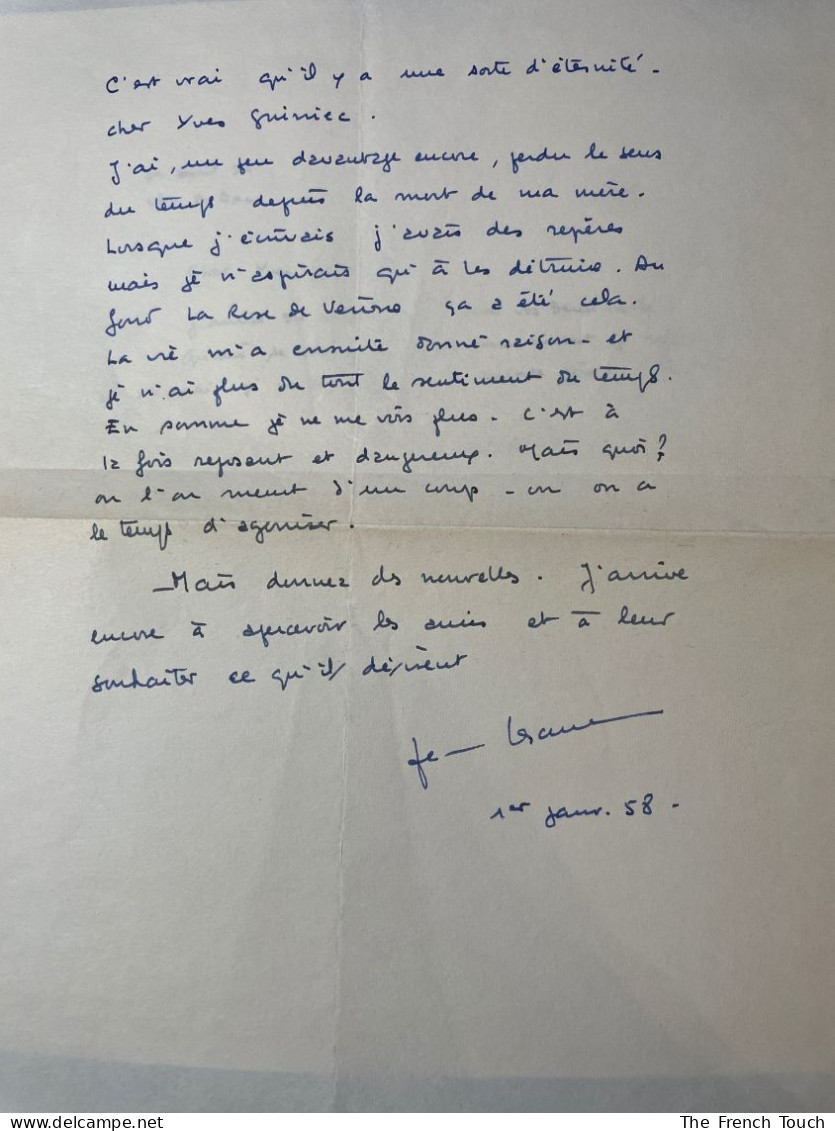 C'est vrai qu'il y a une sorte d'éternité -
cher Yves
J'ai, un peu davantage encore, perdu le sens
du temps depuis la mort de ma mère.
Lorsque j'écrivais j'avais des repères
mais je n'aspirais qu'à les détruire. Au
fond La Rose de ça a été cela.
La vie m'a ensuite donné raison - et
je n'ai plus du tout le sentiment du temps.
En somme je ne me vois plus - c'est à
la fois reposant et dangereux. Mais quoi?
ou l'on meurt d'un coup - ou on a
le temps d'agoniser.
- Mais donnez des nouvelles. J'arrive
encore à apercevoir les amis et à leur
souhaiter ce qu'ils désirent
1er janv. 58 -
The French Touch
delcampe.net